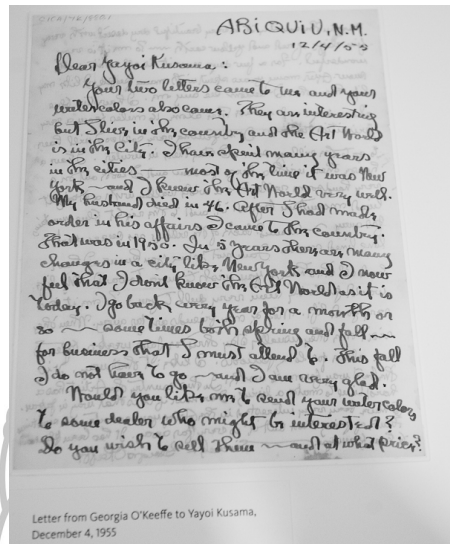 ABIQUIU, N.M.
12/4/55
Dear Yayoi Kusama:
Your two letters came to me and your
watercolors also came. They are interesting
but I live in the country and the Art World
is in the City. I have spent many years
in the cities — most of the time it was New
York — and I knew the Art World very well.
My husband died in 46. After I had made
order in his affairs I came to the country.
That was in 1950. In 5 years there are many
changes in a city like New York and I now
feel that I don't know the Art World as it is
today. I go back every year for a month or
so — sometimes both spring and fall —
for business that I must attend to. This fall
I do not have to go — and I am very glad.
Would you like me to send your watercolors
to some dealer who might be interested?
Do you wish to sell them — and at what price?
Letter from Georgia O'Keeffe to Yayoi Kusama,
December 4, 1955